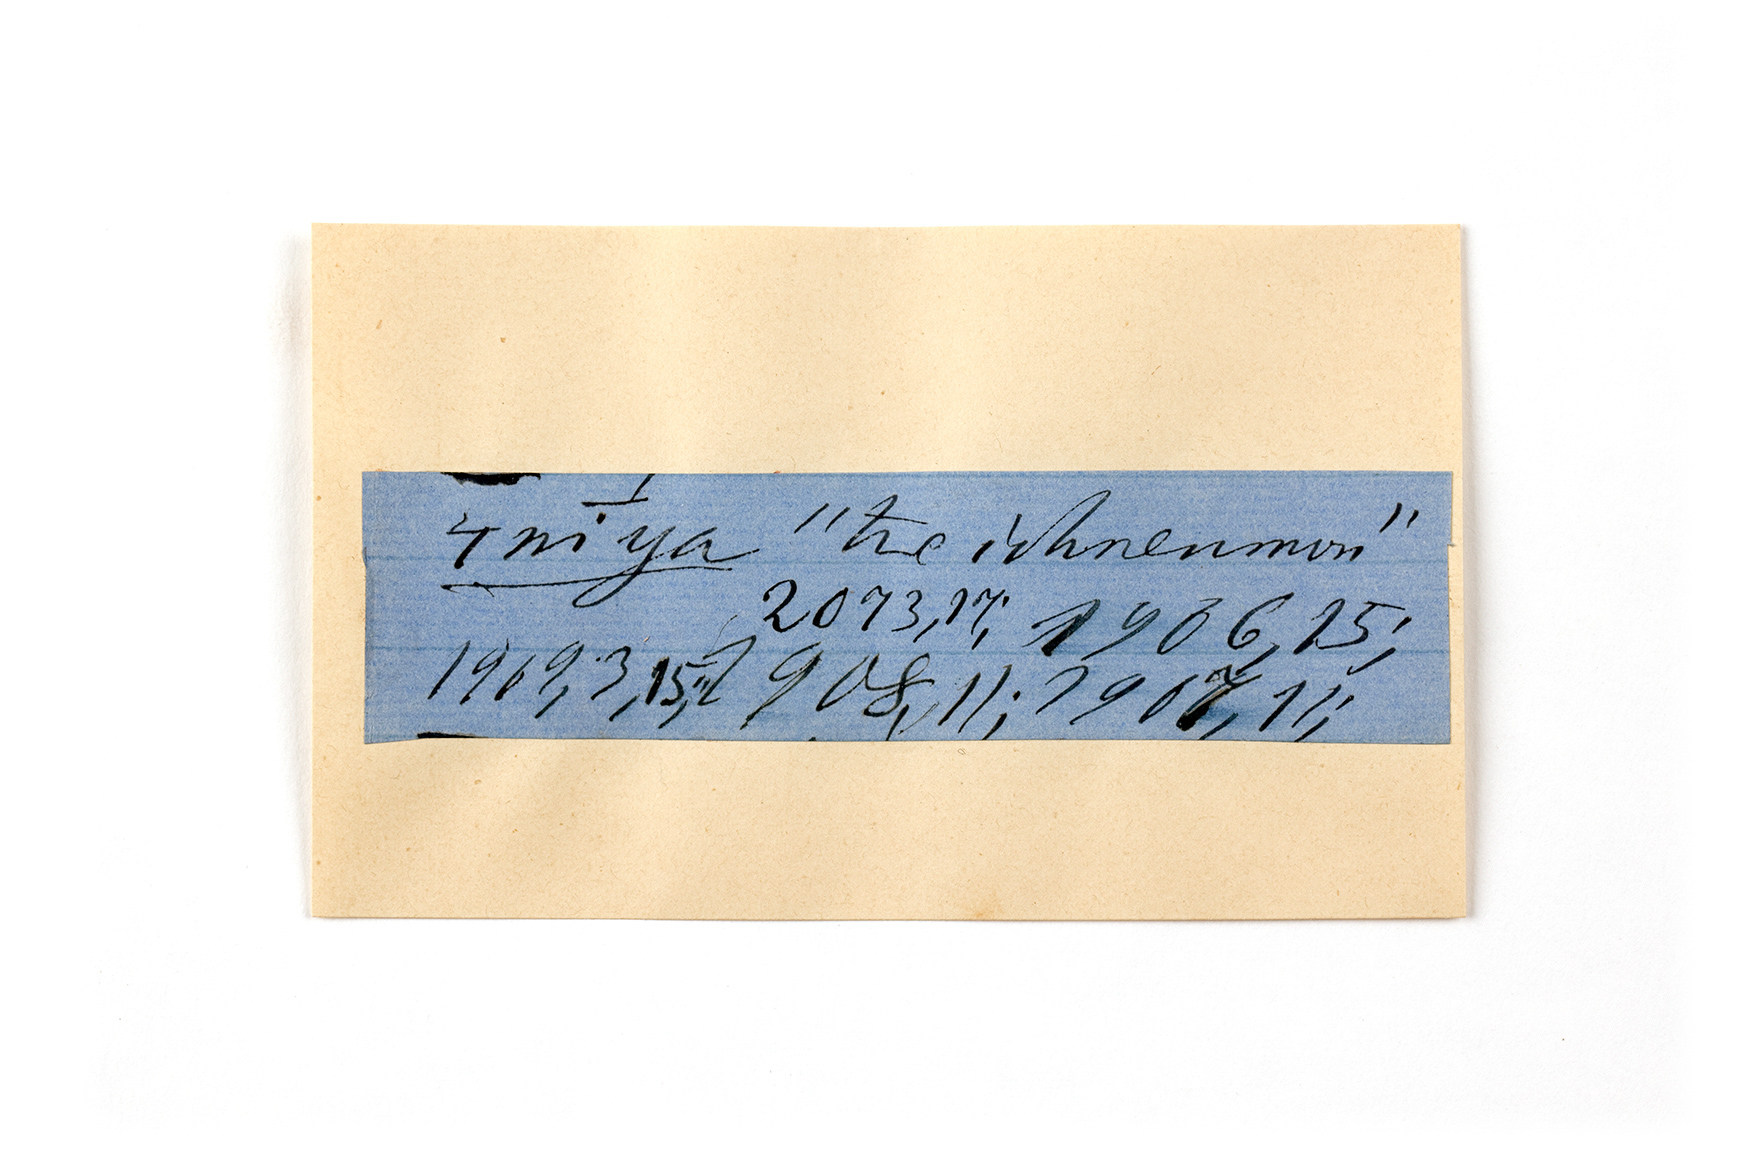 ɬniya "the ichneumon"
2073,17; 1906,15;
1969,3,15; 1908,11; 1907,11;